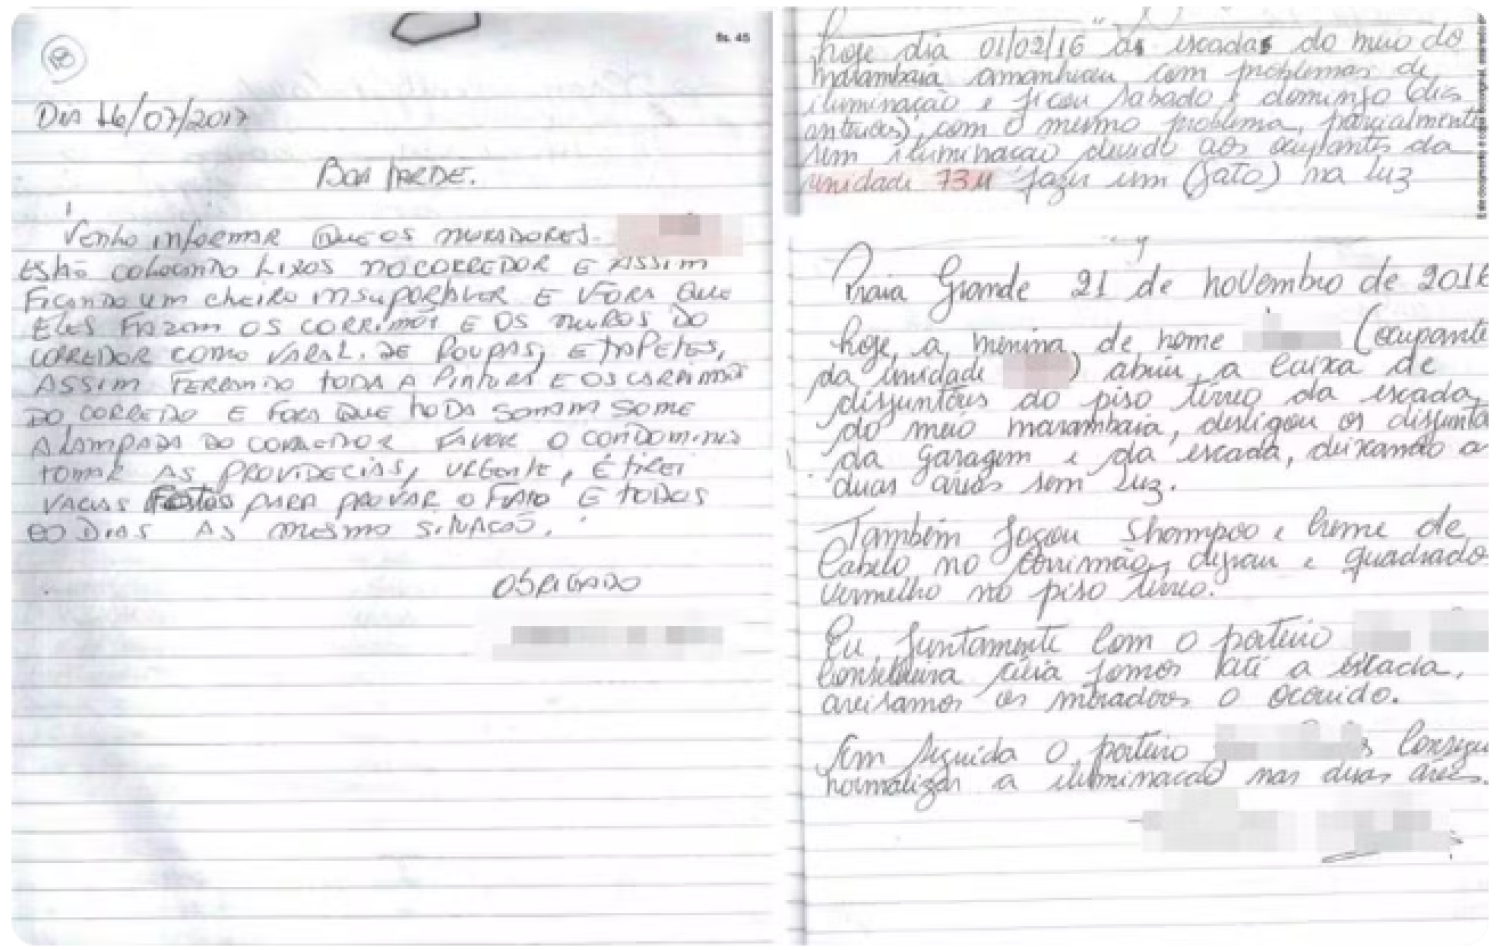 18
fls. 45
Dia 16/07/2017
BOA TARDE.
Venho informar QUE OS MORADORES.
ESTÃO COLOCANDO LIXOS NO CORREDOR E ASSIM
FICANDO UM cheiro INSUPORTAVER E FORA QUE
ELES FAZAM OS CORRIMÕS E OS MUROS DO
CORREDOR COMO VARAL. DE ROUPAS, E TAPETES,
ASSIM FERRANDO TODA A PINTURA E OS CORRIMÃOS
DO CORREDO E FORA QUE TODA SEMANA SOME
A LAMPADA DO CORREDOR FAVOR O CONDOMINIO
TOMAR AS PROVIDECIAS, URGENTE, É TIREI
VARIAS FOTOS PARA PROVAR O FATO E TODOS
OS DIAS AS MESMO SITUAÇÃO.
OBRIGADO
hoje dia 01/02/16 as escadas do meio do
marambaia amanheceu com problemas de
iluminação e ficou sabado e domingo (dias
anteriores), com o mesmo problema, parcialmente
sem iluminação devido aos ocupantes da
unidade 73M fazer um (gato) na luz
Praia Grande 21 de novembro de 2016
hoje, a menina de nome (ocupante
da unidade ) abriu a caixa de
disjuntores do piso térreo da escada
do meio marambaia, desligou os disjunto
da garagem e da escada, deixando a
duas áreas sem luz.
Também jogou shampoo e creme de
Cabelo no corrimão, degrau e quadrado
vermelho no piso térreo.
Eu, juntamente com o porteiro
Conselheira fomos até a escada,
avisamos os moradores o ocorrido.
Em seguida o porteiro consegu
normalizar a iluminação nas duas áreas.